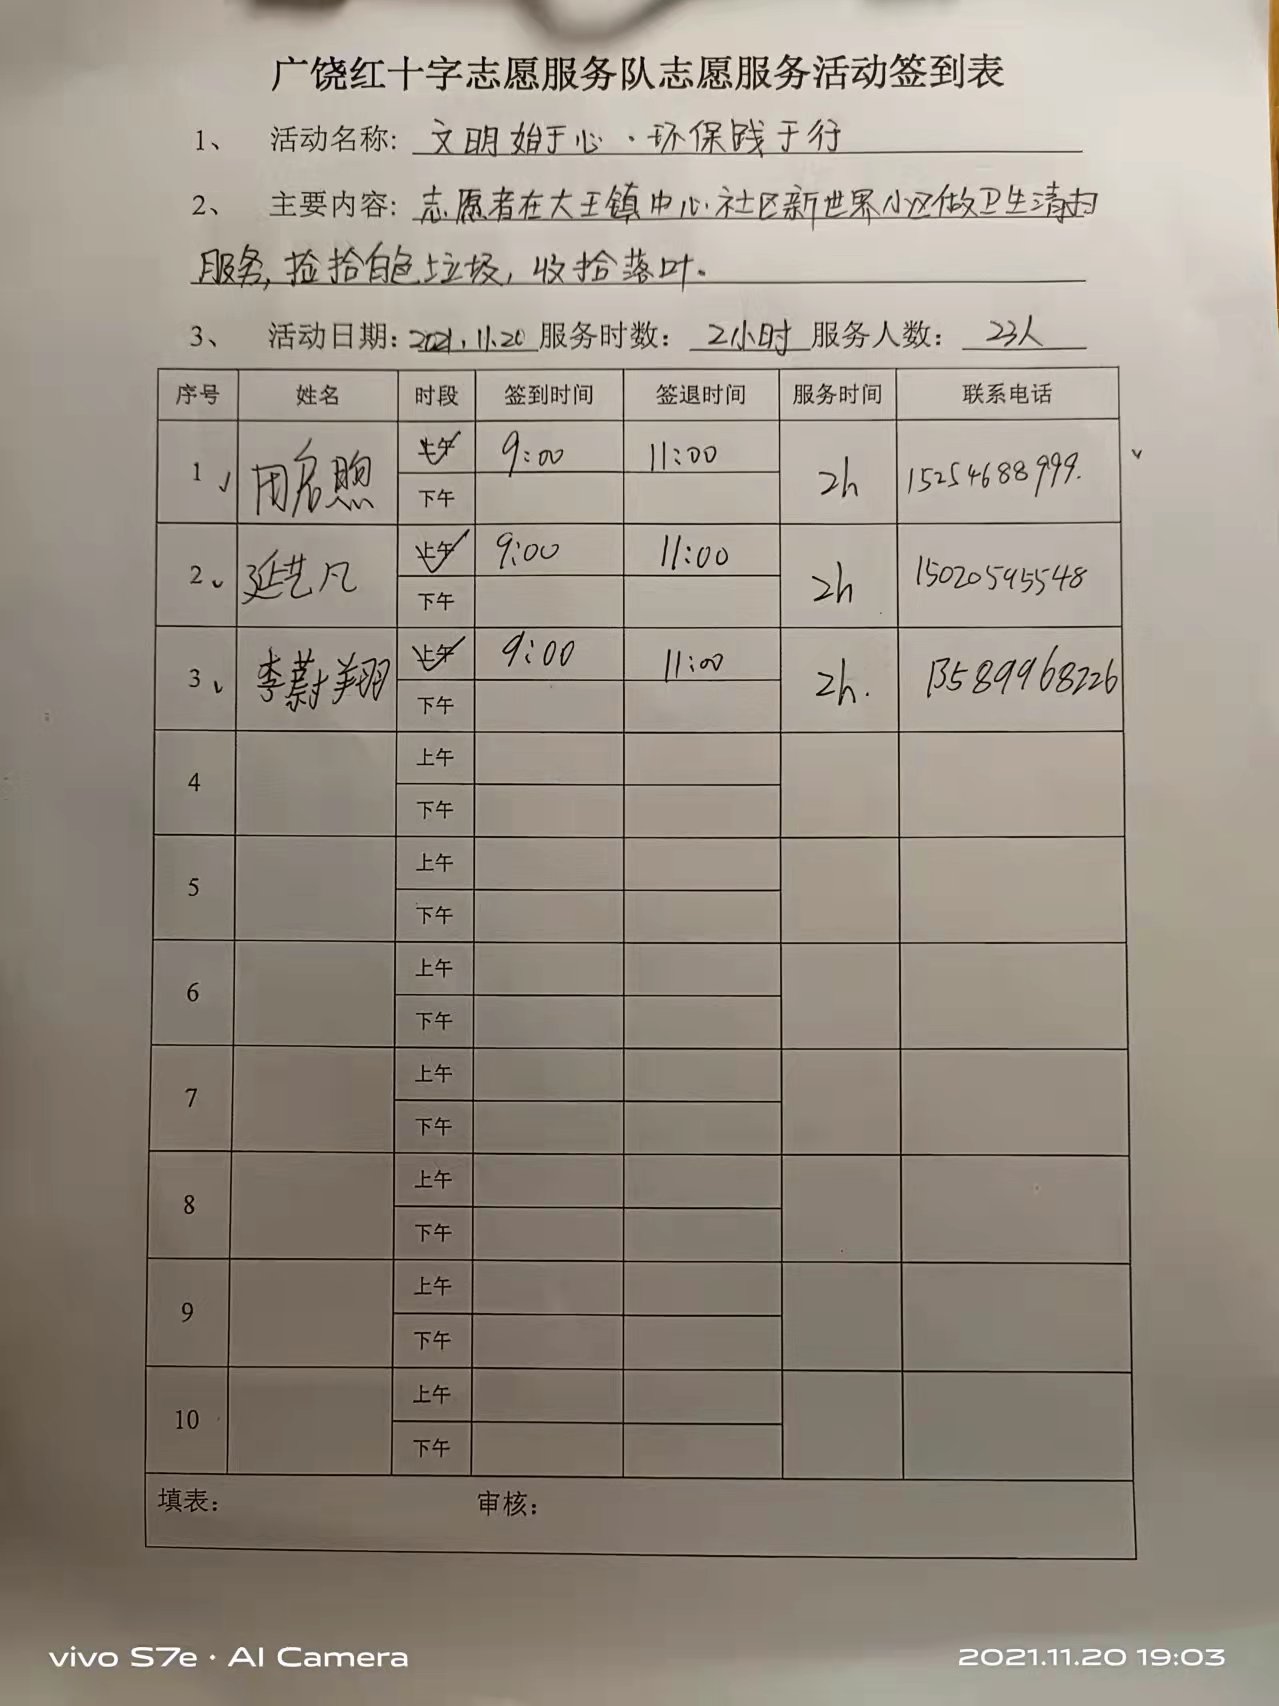 广饶红十字志愿服务队志愿服务活动签到表
1、 活动名称: 文明始于心·环保践于行
2、 主要内容: 志愿者在大王镇中心社区新世界小区做卫生清扫
服务,捡拾白色垃圾,收拾落叶.
3、 活动日期: 2021.11.20 服务时数: 2小时 服务人数: 23人
序号 姓名 时段 签到时间 签退时间 服务时间 联系电话
1 上午 9:00 11:00 2h 15254688999.
下午
2 延艺凡 上午 9:00 11:00 2h 15020595548
下午
3 李蔚翔 上午 9:00 11:00 2h. 13589968226
下午
4 上午
下午
5 上午
下午
6 上午
下午
7 上午
下午
8 上午
下午
9 上午
下午
10 上午
下午
填表: 审核:
vivo S7e · AI Camera 2021.11.20 19:03